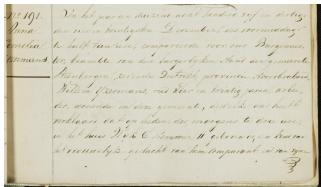 No 191.
Anna
Cornelia
In het jaar een duizend acht honderd vijf en dertig,
den een en twintigsten December, des voormiddags
te half twaalf ure, compareerde voor ons Burgemees-
ter, beambte van den burgerlijken stand der gemeente
Steenbergen, district, provincie Noordbrabant,
Willem, oud vier en twintig jaren, arbei-
der, wonende in deze gemeente, dewelke ons heeft
verklaard dat op heden des morgens te drie ure,
in het huis Wijk C Nommer 11 geboren is, een kind van
het vrouwelijk geslacht van hem Comparant en van zijne